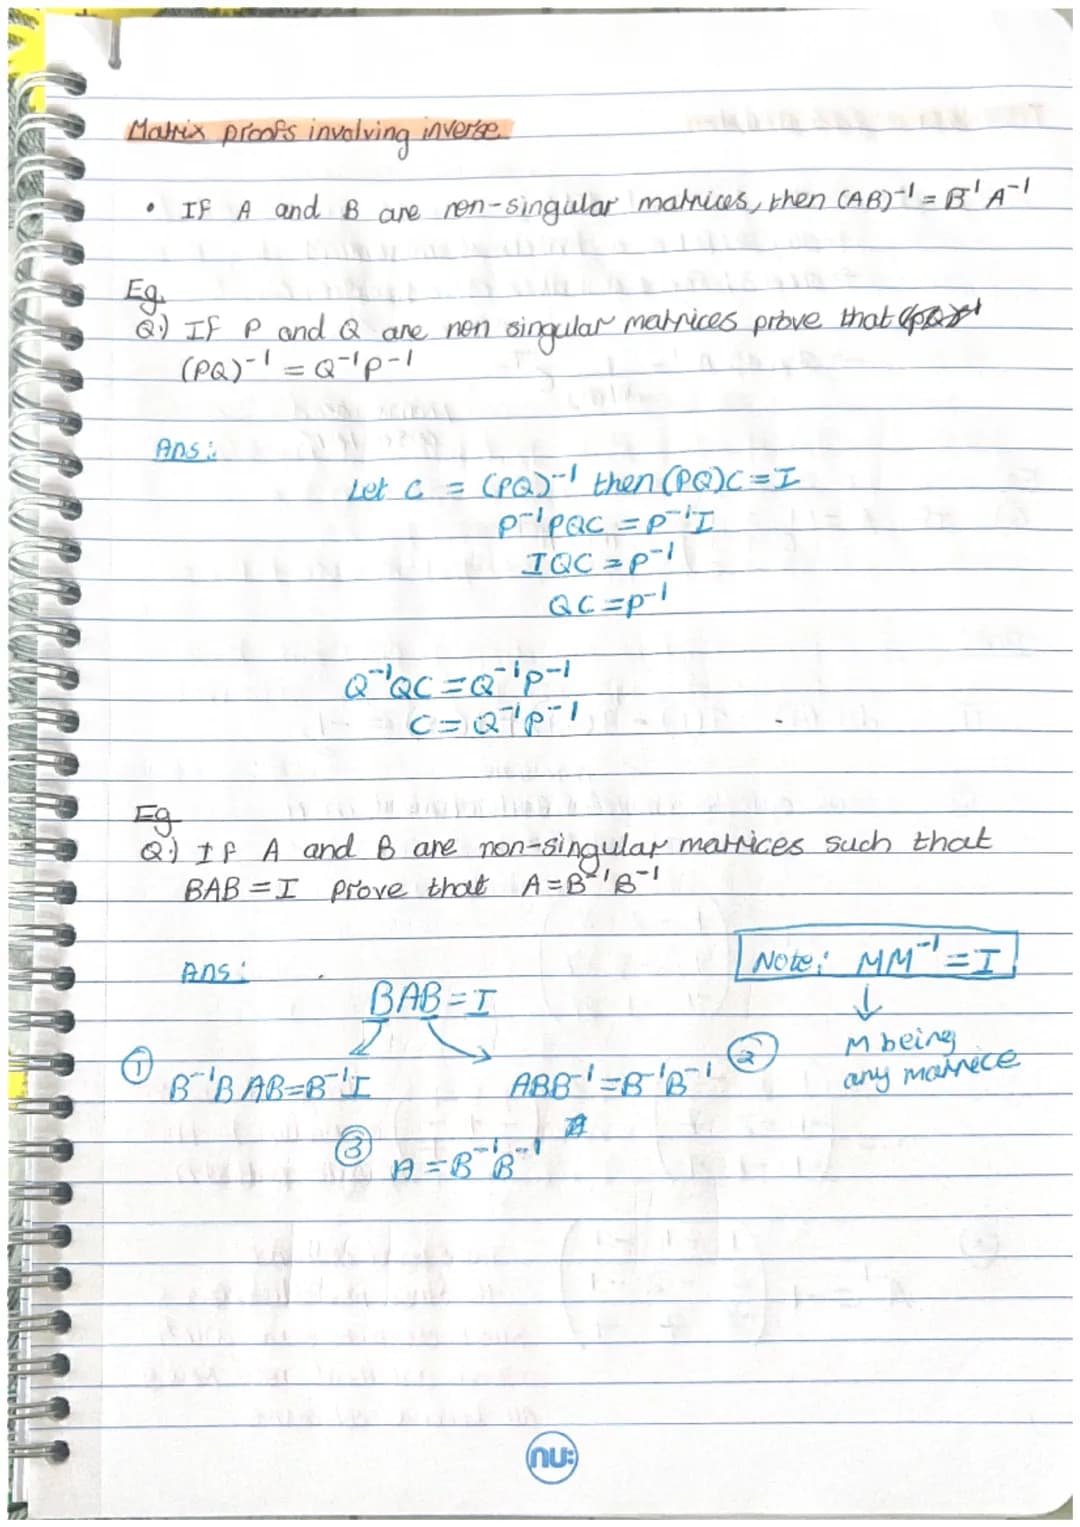 Matrix proofs involving inverse.
• If A and B are non-singular matrices, then (AB)⁻¹ = B⁻¹ A⁻¹
Eg.
Q.) If P and Q are non singular matrices prove that
(PQ)⁻¹ = Q⁻¹P⁻¹
Ans:
Let C = (PQ)⁻¹ then (PQ)C = I
P⁻¹PQC = P⁻¹I
IQC = P⁻¹
QC = P⁻¹
Q⁻¹QC = Q⁻¹P⁻¹
C = Q⁻¹P⁻¹
Eg
Q.) If A and B are non-singular matrices such that
BAB = I prove that A = B⁻¹B⁻¹
Ans:
Note: MM⁻¹ = I
BAB = I
M being
any matrice
① B⁻¹BAB = B⁻¹I
ABB⁻¹ = B⁻¹B⁻¹ ②
③ A = B⁻¹B⁻¹
nu: